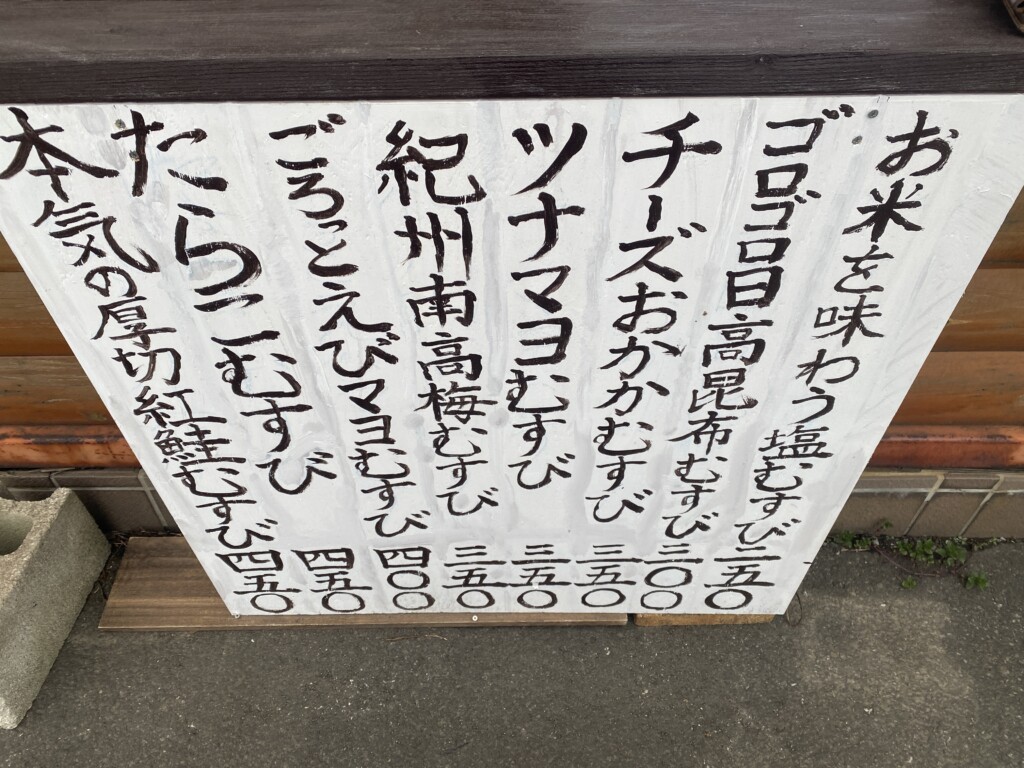 お米を味わう塩むすび 二五〇
ゴロゴロ日高昆布むすび 三〇〇
チーズおかかむすび 三五〇
ツナマヨむすび 三五〇
紀州南高梅むすび 三五〇
ごろっとえびマヨむすび 四〇〇
たらこむすび 四五〇
本気の厚切紅鮭むすび 四五〇